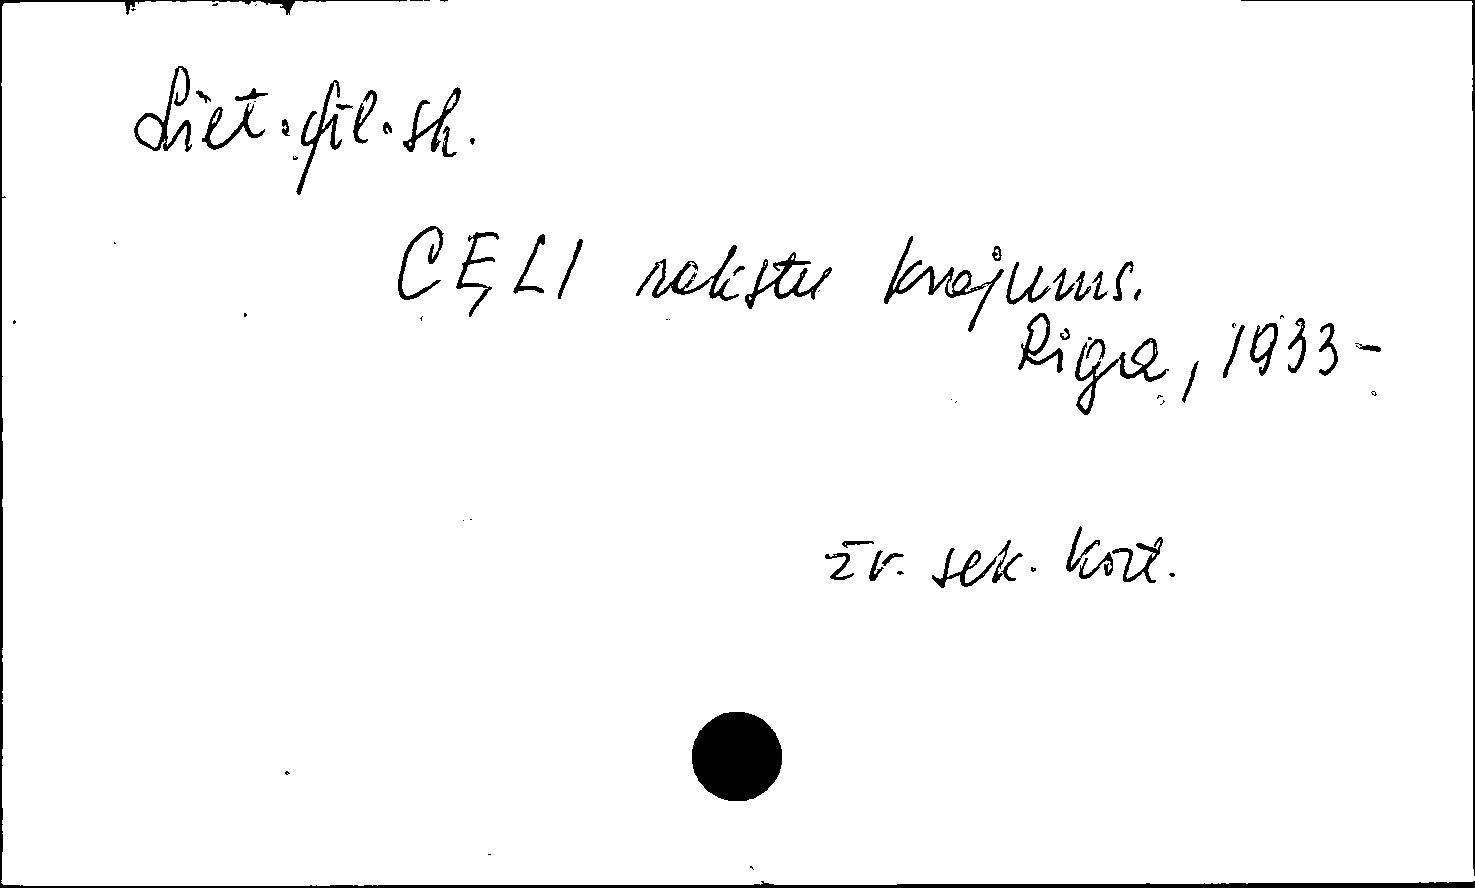 Liet. fil. sk.
CĘLI rakstu krājums.
Riga, 1933-
žr. sek. kort.